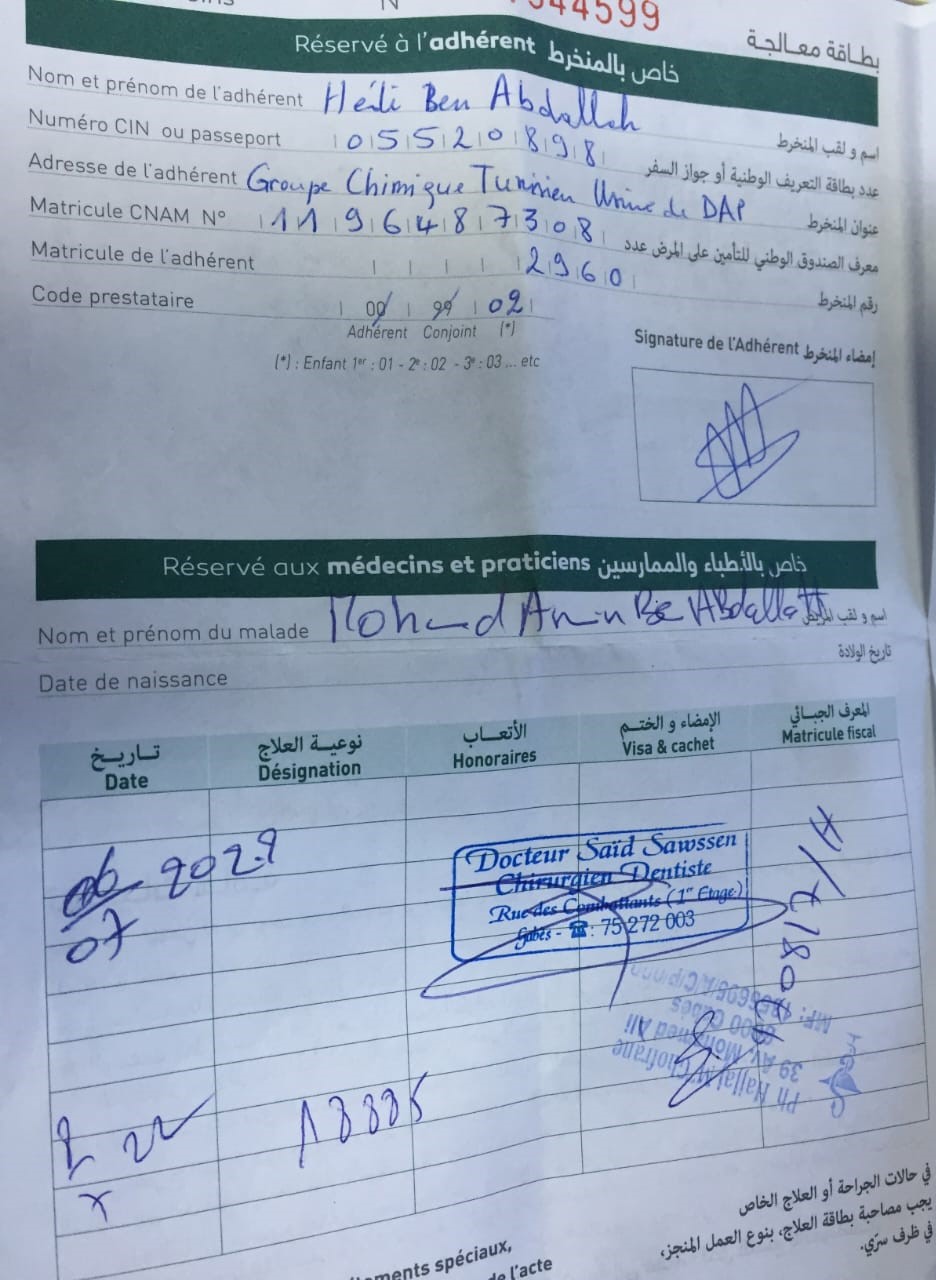 N° 344599
بطاقة معالجة
Réservé à l'adhérent خاص بالمنخرط
Nom et prénom de l'adhérent Hédi Ben Abdallah اسم و لقب المنخرط
Numéro CIN ou passeport 05520898 عدد بطاقة التعريف الوطنية أو جواز السفر
Adresse de l'adhérent Groupe Chimique Tunisien Usine de DAP عنوان المنخرط
Matricule CNAM N° 1196487308 معرف الصندوق الوطني للتأمين على المرض عدد
Matricule de l'adhérent 2960 رقم المنخرط
Code prestataire 00 99 02
Adhérent Conjoint (*)
(*) : Enfant 1er : 01 - 2e : 02 - 3e : 03 ... etc
Signature de l'Adhérent إمضاء المنخرط
Réservé aux médecins et praticiens خاص بالأطباء والممارسين
Nom et prénom du malade Mohamed Amin Ben Abdallah اسم و لقب المريض
Date de naissance تاريخ الولادة
تاريخ نوعية العلاج الأتعاب الإمضاء و الختم المعرف الجبائي
Date Désignation Honoraires Visa & cachet Matricule fiscal
06 2022
07
Docteur Saïd Sawssen
Chirurgien Dentiste
Rue des Combattants (1er Etage)
Gabès - ☎ : 75 272 003
Ph Najjal M Ghofrane
39 Av. Mohamed Ali
6000 Gabès
22
في حالات الجراحة أو العلاج الخاص
يجب مصاحبة بطاقة العلاج، بنوع العمل المنجز،
في ظرف سرّي.
ments spéciaux,
de l'acte